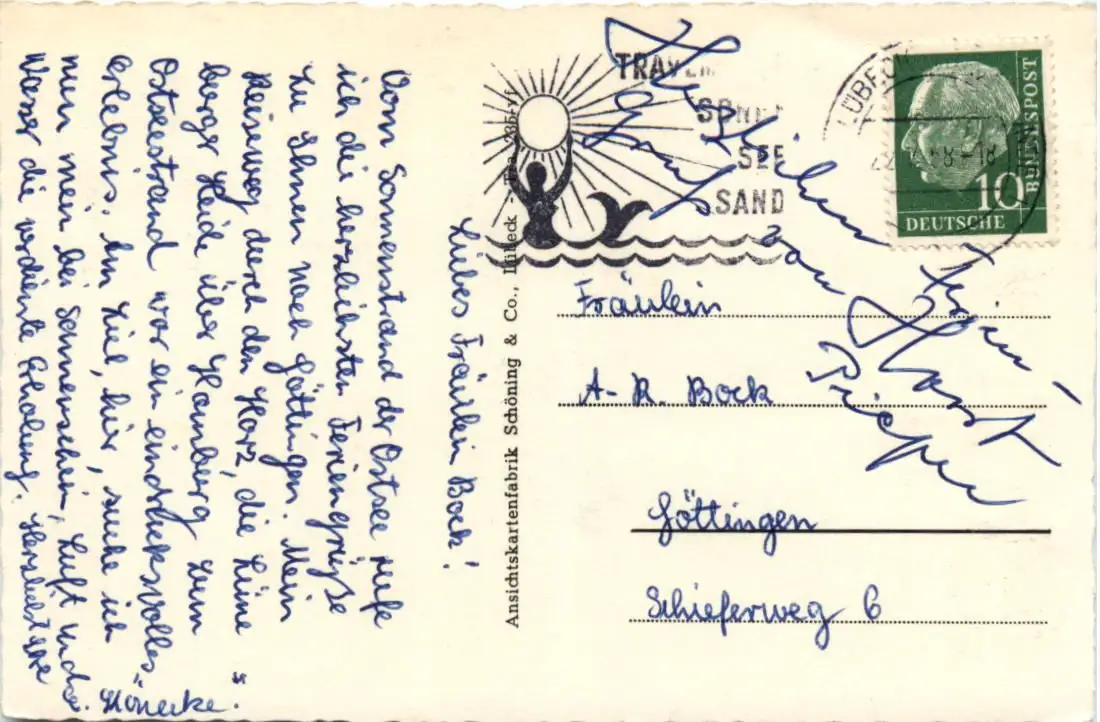 Liebes Fräulein Bock!
Vom Sonnenstrand der Ostsee rufe
ich die herzlichsten Feriengrüße
zu Ihnen nach Göttingen. Mein
Reiseweg durch den Harz, die Lüne"
berger Heide über Hamburg zum
Ostseestrand war ein eindrucksvolles
Erlebnis. Am Ziel, hier, suche ich
nun mein bei Sonnenschein, Luft und
Wasser die verdiente Erholung. Herzlichst Ihre
Hönecke.
Ansichtskartenfabrik Schöning & Co., Lübeck -
TRAVEM
SONN
SEE
SAND
LÜBECK
DEUTSCHE
BUNDESPOST
10
Fräulein
A- R. Bock
Göttingen
Schieferweg 6
von Horst